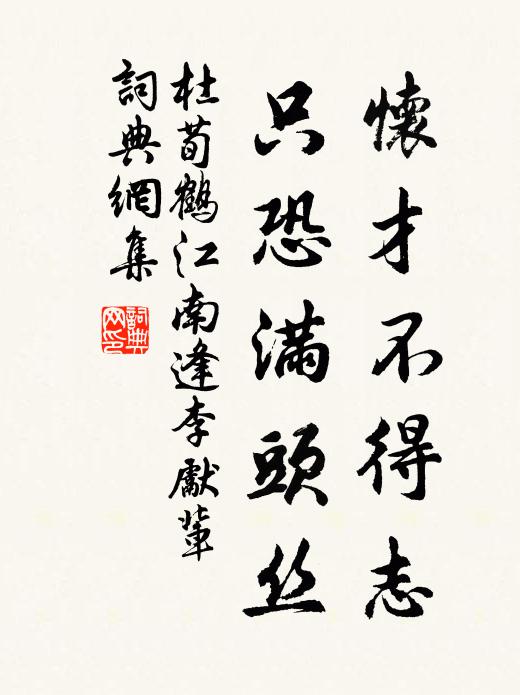 懷才不得志
只恐滿頭丝
杜荀鶴江南逢李獻輩
詞典網集
詞典网印